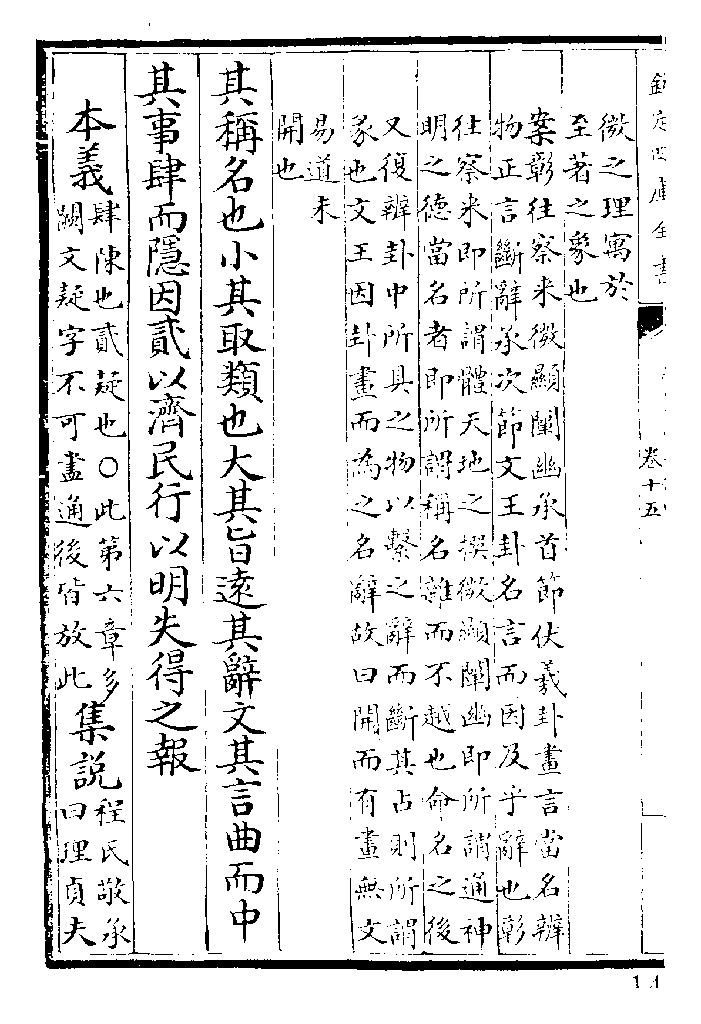 欽定四庫全書
卷十五
微之理寓於
至著之象也
案彰往察来微顯闡幽承首節伏羲卦畫言當名辨
物正言斷辭承次節文王卦名言而因及乎辭也彰
往察来即所謂體天地之撰微顯闡幽即所謂通神
明之德當名者即所謂稱名雜而不越也命名之後
又復辨卦中所具之物以繫之辭而斷其占則所謂
彖也文王因卦畫而為之名辭故曰開而有畫無文
易道未
開也
其稱名也小其取類也大其旨遠其辭文其言曲而中
其事肆而隱因貳以濟民行以明失得之報
本義肆陳也貳疑也○此第六章多
闕文疑字不可盡通後皆放此
集說程氏敬承
曰理貞夫